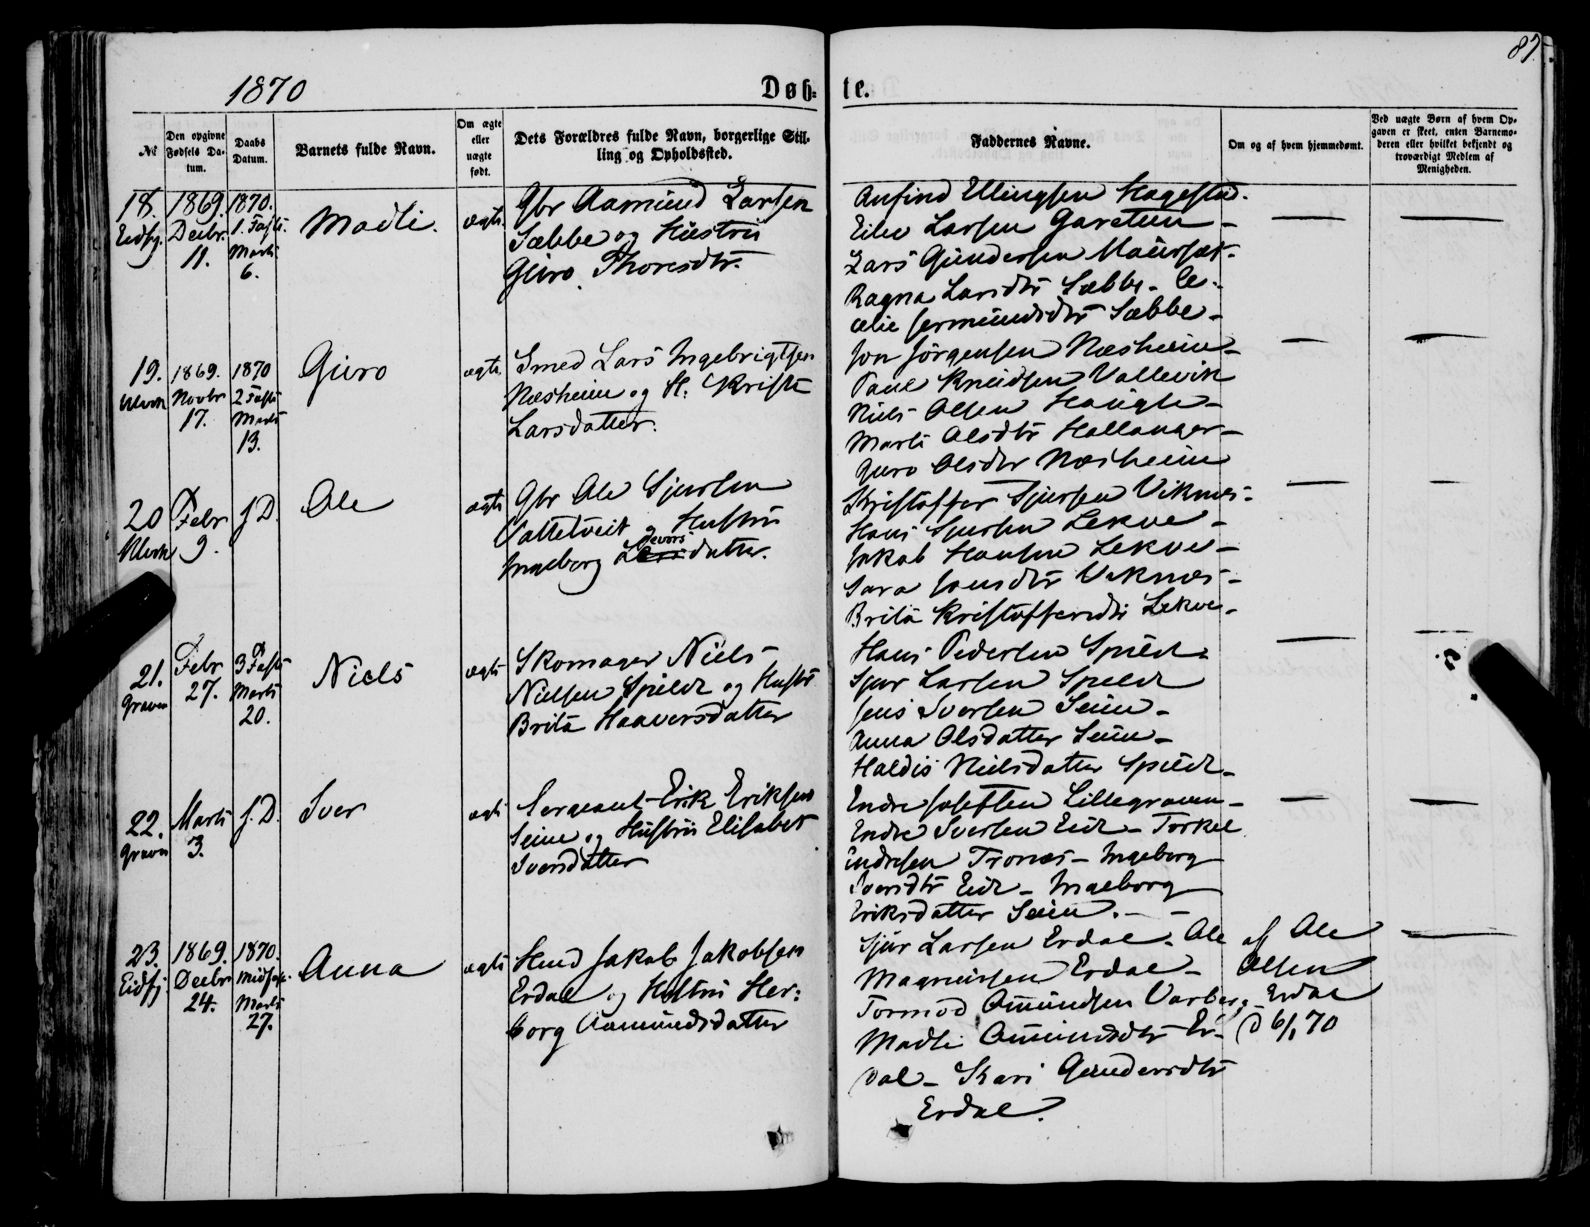 87.
1870
Døb-
te.
№
Den opgivne Fødsels Datum.
Daabs Datum.
Barnets fulde Navn.
Om ægte eller uægte født.
Dets Forældres fulde Navn, borgerlige Stilling og Opholdssted.
Faddernes Navne.
Om og af hvem hjemmedømt.
Ved uægte Børn af hvem Opgaven er skeet, enten Barnemoderen eller hvilket bekjendt og troværdigt Medlem af Menigheden.
18.
Eidfj.
1869.
Decbr.
11.
1870.
1. Faste
Marts
6.
Madli.
ægte
Gbr Aamund Larsen
Sæbbe og Hustru
Guro Thoresdtr.
Anfind Ellingsen Hagestad.
Eilev Larsen Garetun -
Lars Gundersen Maursæt.
Ragna Larsdtr Sæbbe - Ce-
celie Jermundsdtr Sæbbe -
19.
Ulvik
1869.
Novbr
17.
1870
2 Faste
Marts
13.
Guro
ægte
Smed Lars Ingebrigtsen
Næsheim og H. Kristi
Larsdatter.
Jon Jørgensen Næsheim -
Paul Knudsen Vallevik
Niels Olsen Haugle -
Marta Olsdtr Hallanger -
Guro Olsdtr Næsheim
20
Ulvik
Febr
9.
s. D.
Ole
ægte
Gbr Ole Sjursen
Vattetveit og Hustru
Ingeborg datter.
Kristoffer Sjursen Viknes -
Hans Sjursen Lekve -
Jakob Hansen Lekve -
Sara Jensdtr Viknes -
Brita Kristoffersdtr Lekve -
21.
Graven
Febr
27.
3 Faste
Marts
20.
Niels
ægte
Skomager Niels
Nielsen Spilde og Hustr
Brita Haaversdatter
Hans Pedersen Spilde -
Sjur Larsen Spilde
Jens Iversen Seim -
Anna Olsdatter Seim -
Haldis Nielsdatter Spilde -
22.
Graven
Marts
3.
s. D.
Iver
ægte
Sergeant Erik Eriksen
Seim og Hustru Elisabet
Iversdatter
Endre Josefsen Lillegraven -
Endre Iversen Eide - Torkel
Endresen Trones - Ingeborg
Iversdtr Eide - Ingeborg
Eriksdatter Seim. -
23.
Eidfj.
1869.
Decbr
24.
1870.
Midfaste
Marts
27.
Anna
ægte
Husmd Jakob Jakobsen
Erdal og Hustru Her-
borg Aamundsdatter
Sjur Larsen Erdal. Ole
Magnussen Erdal -
Tormod Omundsen Varberg
Madli Omundsdtr Er-
dal - Kari Gundersdtr
Erdal.
af Ole
Olsen
Erdal
d 6/1 70